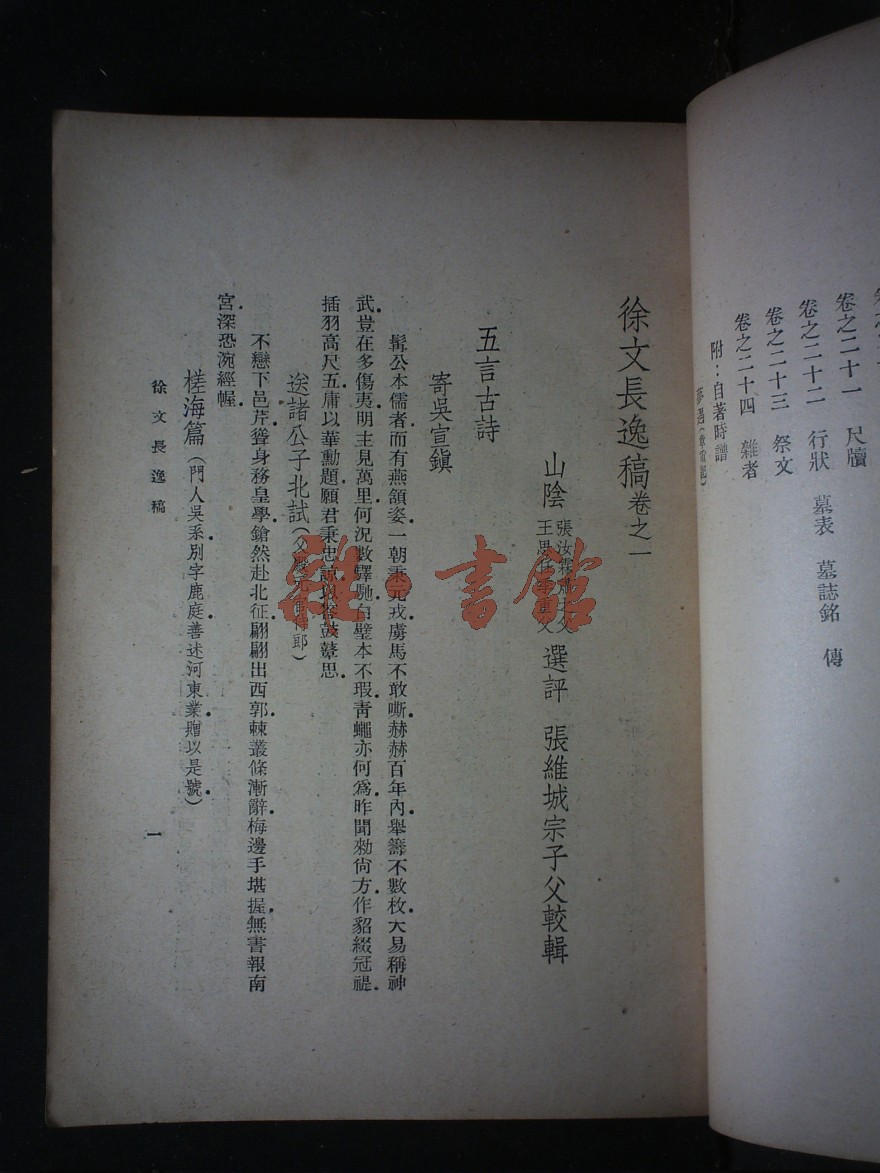 卷之二十一　尺牘
卷之二十二　行狀　墓表　墓誌銘　傳
卷之二十三　祭文
卷之二十四　雜著
附：自著畸譜
徐文長逸稿卷之一
山陰　張汝霖肅之父　王思任季重父　選評　張維城宗子父較輯
五言古詩
寄吳宣鎮
髯公本儒者而有燕頷姿一朝秉元戎虜馬不敢嘶赫赫百年內舉籌不數枚大易稱神
武豈在多傷夷明主見萬里何況數驛馳白璧本不瑕青蠅亦何爲昨聞勑尙方作貂綴冠禔
插羽高尺五庸以華勳題願君秉忠諒以答鼓鼙思
送諸公子北試
不戀下邑芹聳身務皇學鎗然赴北征翩翩出西郭棘叢條漸辭梅邊手堪握無書報南
宮深恐涴經幄
槎海篇（門人吳系別字鹿庭善述河東業贈以是號）
徐文長逸稿
一
雜·書館